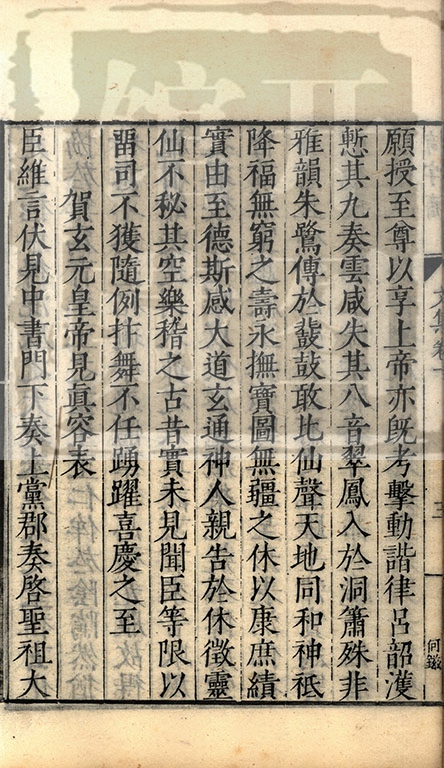 願授至尊以享上帝亦旣考擊動諧律呂韶濩
慙其九奏雲咸失其八音翠鳳入於洞簫殊非
雅韻朱鷺傳於鼓敢比仙聲天地同和神祇
降福無窮之壽永撫寶圖無疆之休以康庶績
實由至德斯感大道玄通神人親告於休徵靈
仙不秘其空樂稽之古昔實未見聞臣等限以
畱司不獲隨例抃舞不任踴躍喜慶之至
賀玄元皇帝見眞容表
臣維言伏見中書門下奏上黨郡奏啓聖祖大
三
何